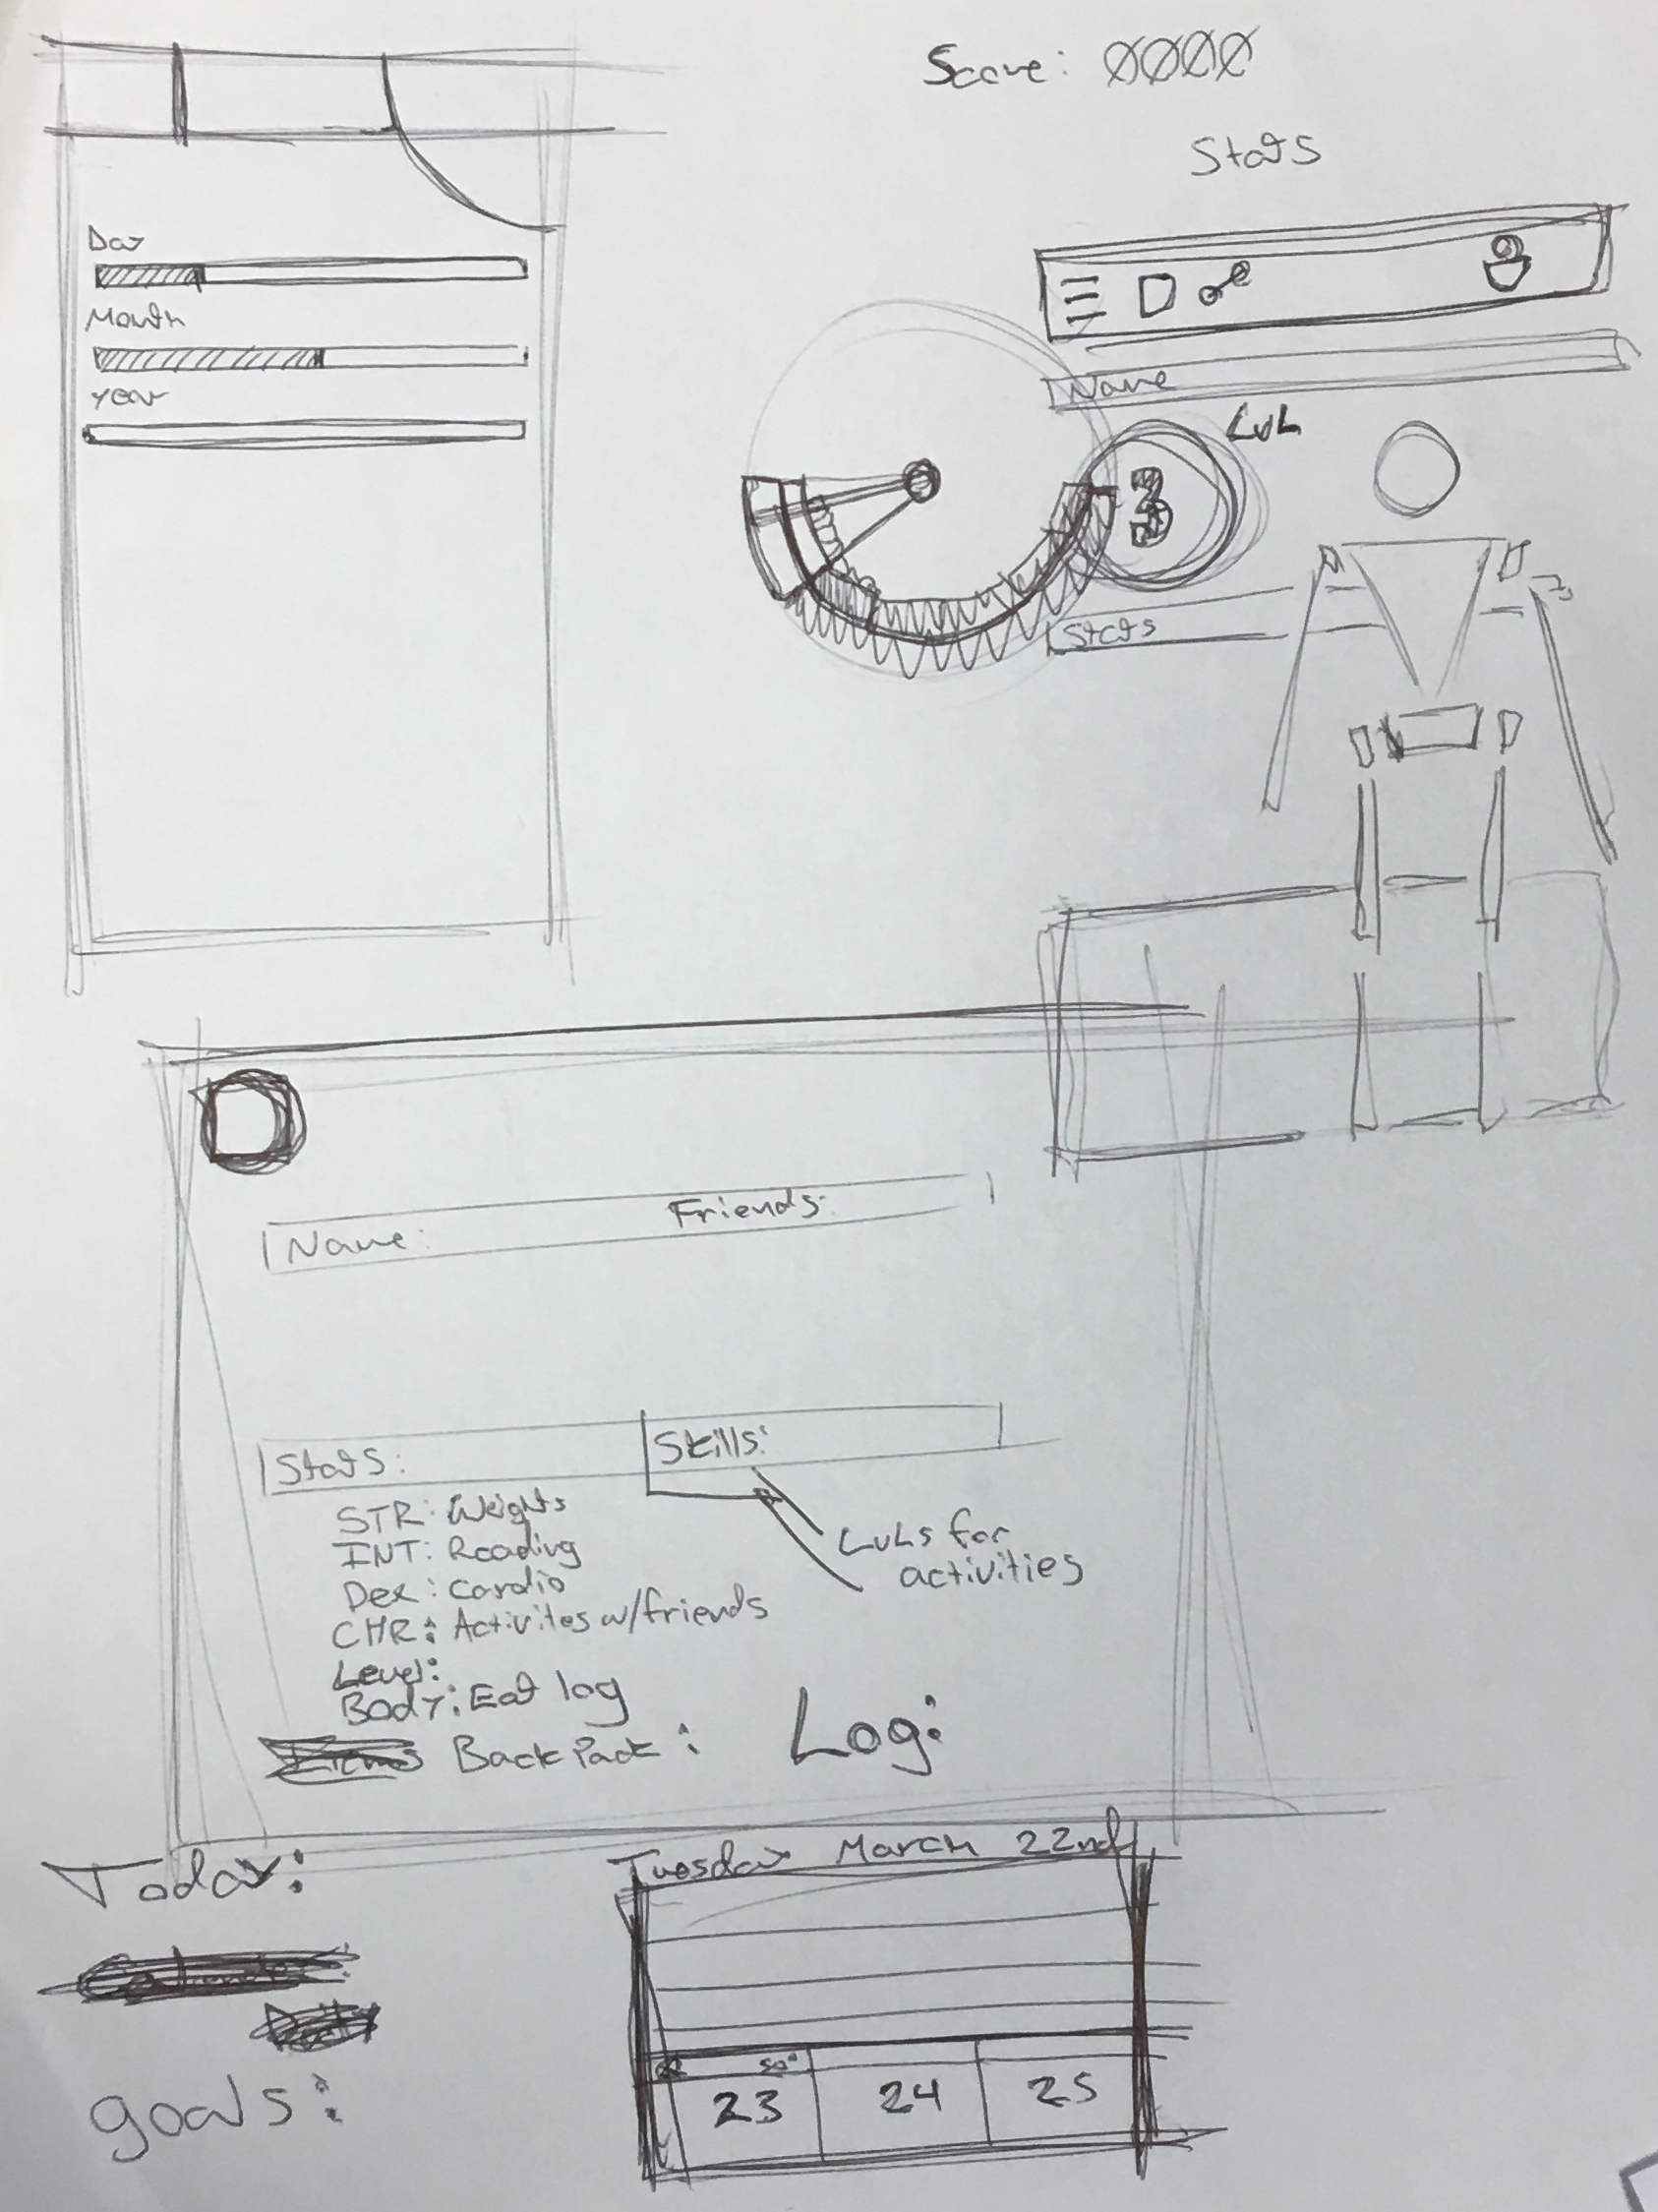 Score: 0000
Stats
Day
Month
Year
Name
LvL
3
Stats
Friends:
Name:
Stats:
Skills:
STR: Weights
INT: Reading
Dex: cardio
CHR: Activites w/friends
Level:
Body: Eat log
LvLs for
activities
BackPack:
Log:
Today:
Tuesday March 22nd
goals:
50°
23
24
25